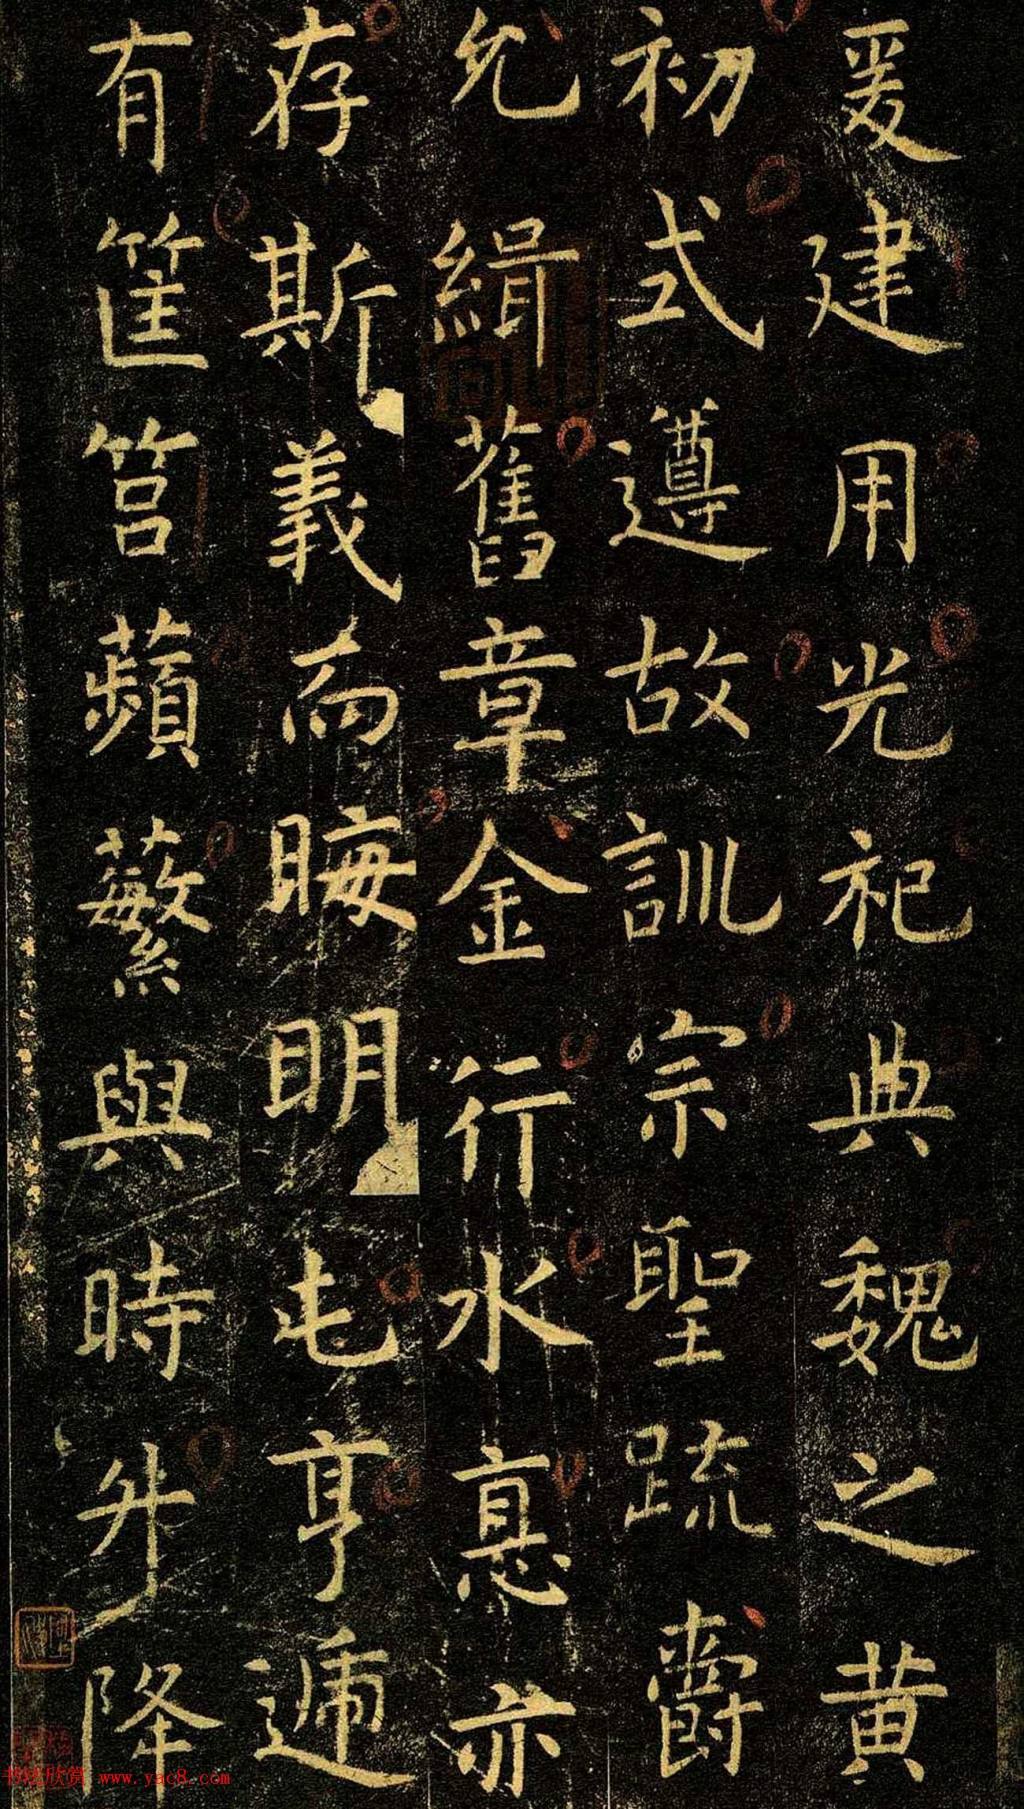 爰建用光祀典魏之黄
初式遵故訓宗聖疏爵
允緝舊章金行水悳亦
存斯義而晦明屯亨遞
有筐筥蘋蘩與時升降
书法欣赏 www.yac8.com